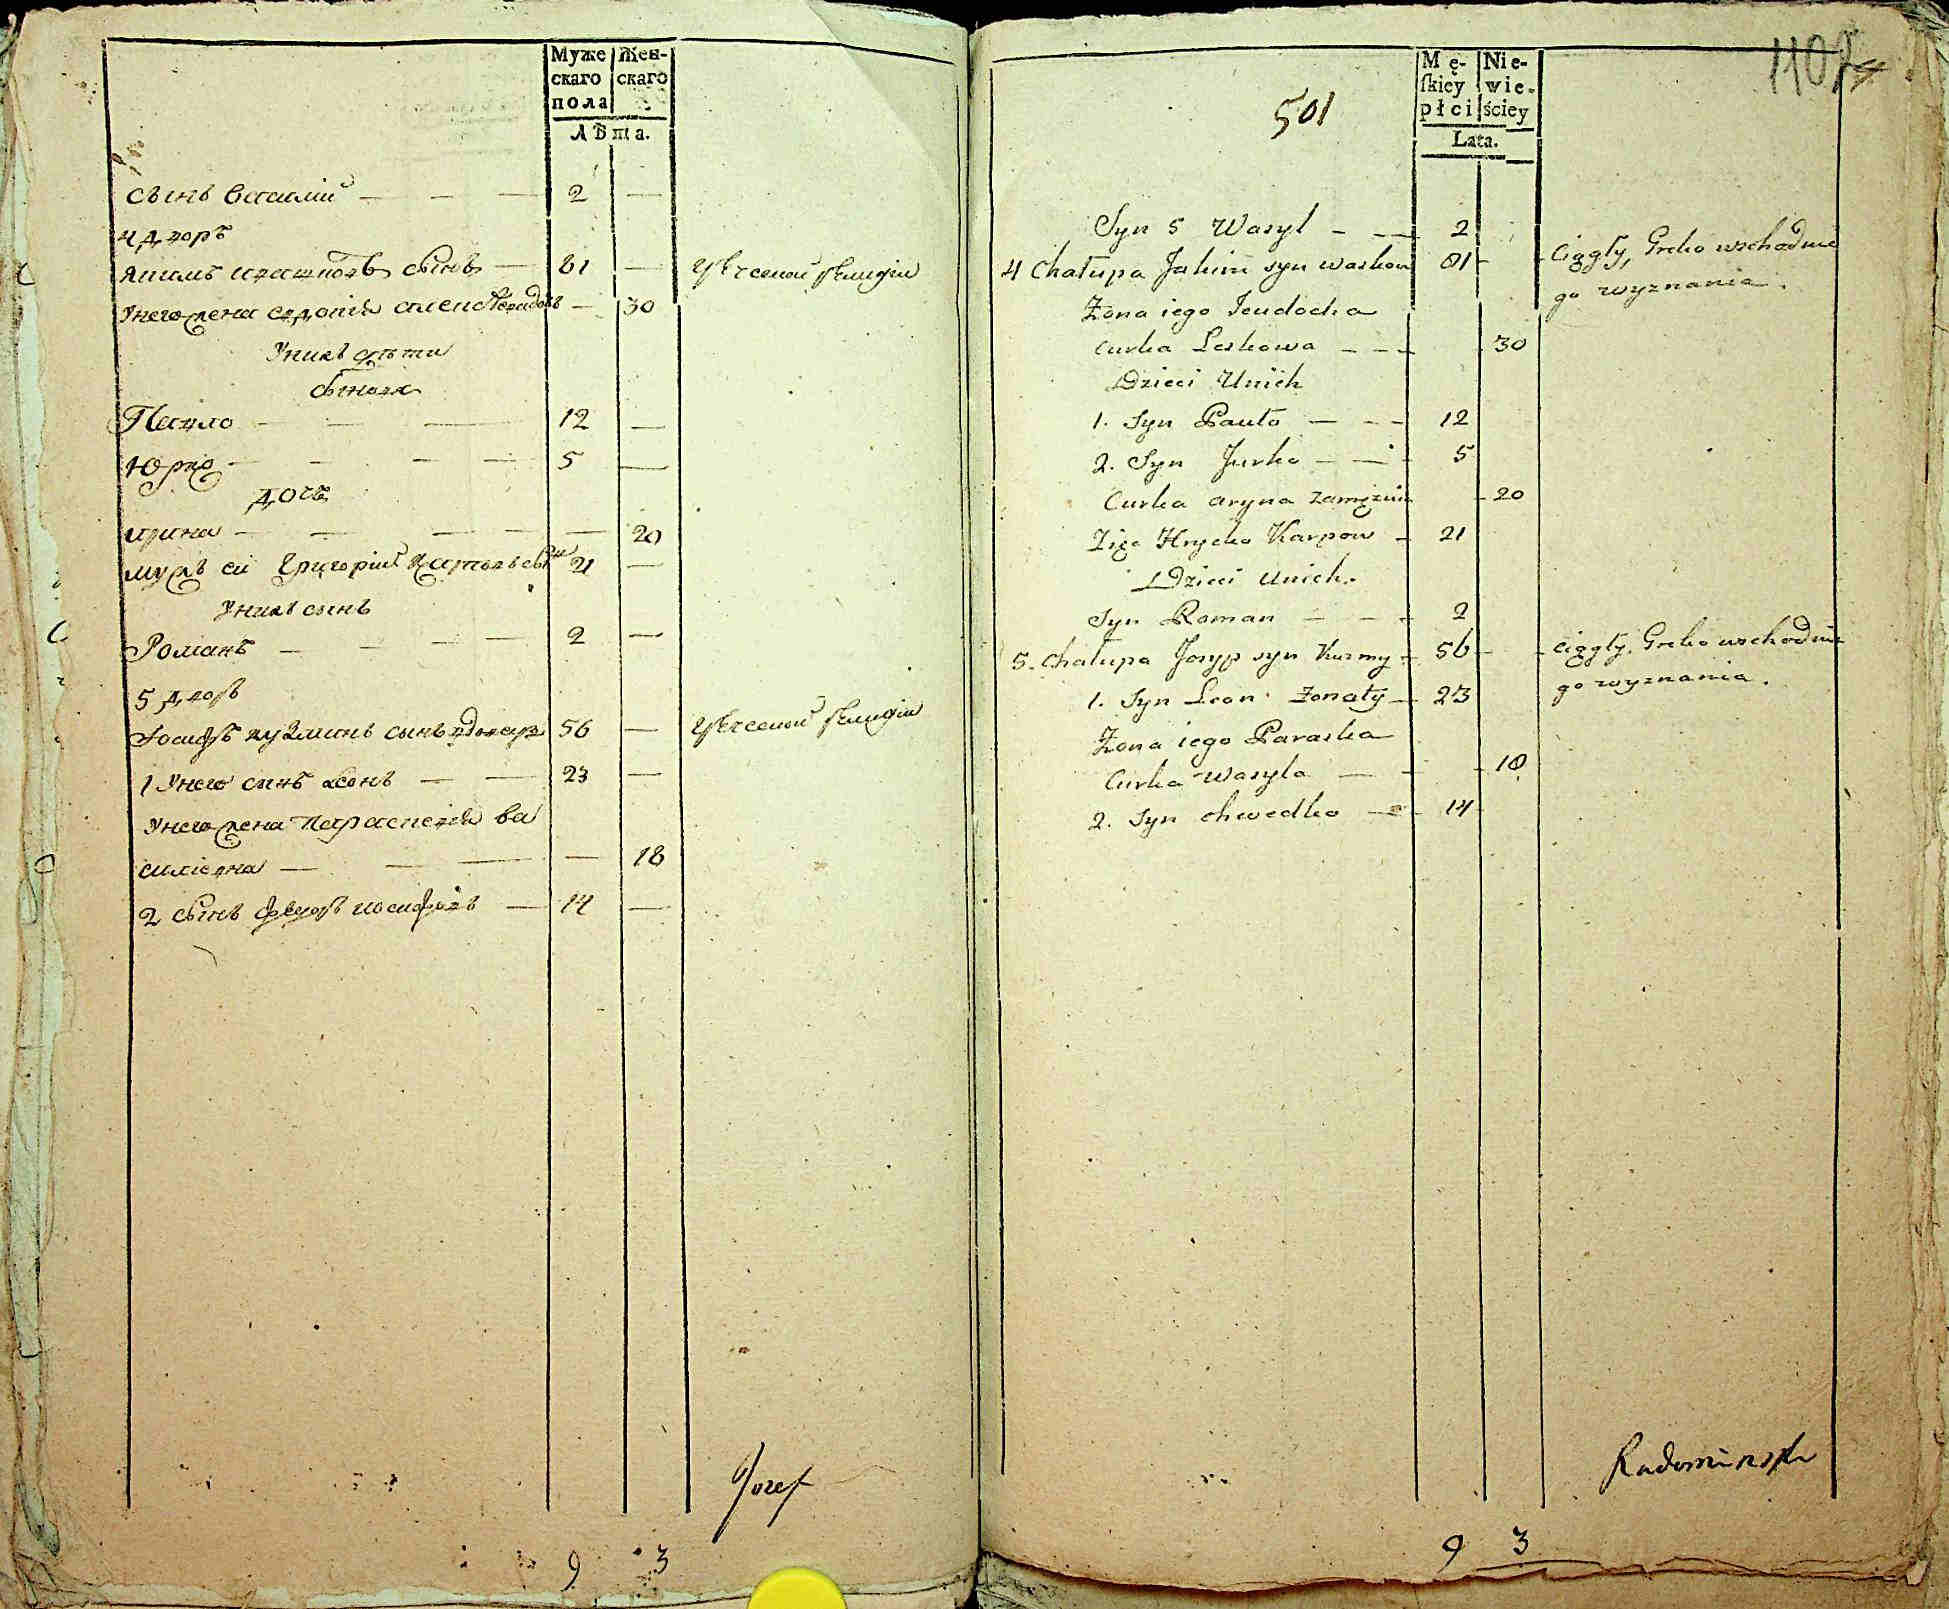 Муже Жен-
скаго скаго
пола
Лѣта.
сынъ василій 2
4 дворъ
якимъ ивашковъ сынъ 81 греческой религіи
у него жена евдокія 30
у нихъ дѣти
сыновя
Павло 12
Юрко 5
дочь
ирина 20
мужъ еи Григорій 21
у нихъ сынъ
Романъ 2
5 дворъ
Іосифъ кузминъ сынъ вдовецъ 56 греческой религіи
1 у него сынъ леонъ 23
у него жена парасковія ва
силіевна 18
2 сынъ федоръ иосифовъ 14
Jozef
9 3
501
Mę- Nie-
ſkiey wie-
płci ściey
Lata.
Syn 5 Wasyl 2
4 Chałupa Jakim syn waskow 81 Ciągły, Greko wschodnie
go wyznania.
Żona iego Jeudocha
curka Leskowa 30
Dzieci Unich
1. Syn Pauło 12
2. Syn Jurko 5
Curka aryna zamężnia 20
Zięc Hrycko Karpow 21
Dzieci unich.
Syn Roman 2
5. Chałupa Josyp syn Kuzmy 56 Ciągły, Greko wschodnie
go wyznania.
1. Syn Leon Zonaty 23
Żona iego Paraska
Curka Wasyla 18
2. Syn chwedko 14
Radominski
9 3